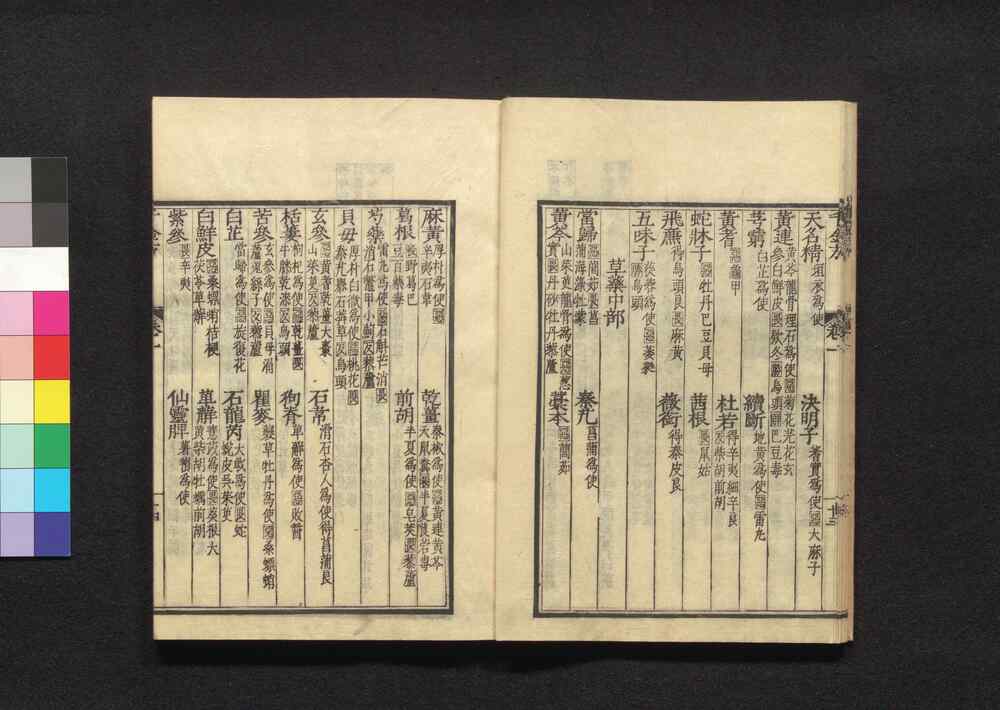 天名精 垣衣為使 決明子 蓍實為使惡大麻子
黃連 黃芩龍骨理石為使惡菊花芫花玄參白鮮皮畏款冬勝烏頭解巴豆毒
芎藭 白芷為使 續斷 地黃為使惡雷丸
黃耆 惡龜甲 杜若 得辛夷細辛良惡柴胡前胡
蛇牀子 惡牡丹巴豆貝母 茜根 畏鼠姑
飛廉 得烏頭良惡麻黃 薇銜 得秦皮良
五味子 蓯蓉為使惡葳蕤勝烏頭
草藥中部
當歸 惡䕡茹畏菖蒲海藻牡蒙 秦艽 菖蒲為使
黃芩 山茱萸龍骨為使惡葱實畏丹砂牡丹藜蘆 藁本 惡䕡茹
麻黃 厚朴為使惡辛夷石韋 乾薑 秦椒為使惡黃連黃芩天鼠糞殺半夏莨菪毒
葛根 殺野葛巴豆百藥毒 前胡 半夏為使惡皂莢畏藜蘆
芍藥 雷丸為使惡石斛芒消畏消石鱉甲小薊反藜蘆
貝母 厚朴白微為使惡桃花畏秦艽礜石莽草反烏頭
玄參 惡黃耆乾薑大棗山茱萸反藜蘆 石韋 滑石杏人為使得菖蒲良
栝樓 枸杞為使惡乾薑畏牛膝乾漆反烏頭 狗脊 萆薢為使惡敗醬
苦參 玄參為使惡貝母漏蘆菟絲子反藜蘆 瞿麥 蘘草牡丹為使惡桑螵蛸
白芷 當歸為使惡旋復花 石龍芮 大戟為使畏蛇蛻皮吳茱萸
白鮮皮 惡桑螵蛸桔梗茯苓萆薢 萆薢 薏苡為使畏葵根大黃柴胡牡蠣前胡
紫參 畏辛夷 仙靈脾 薯蕷為使